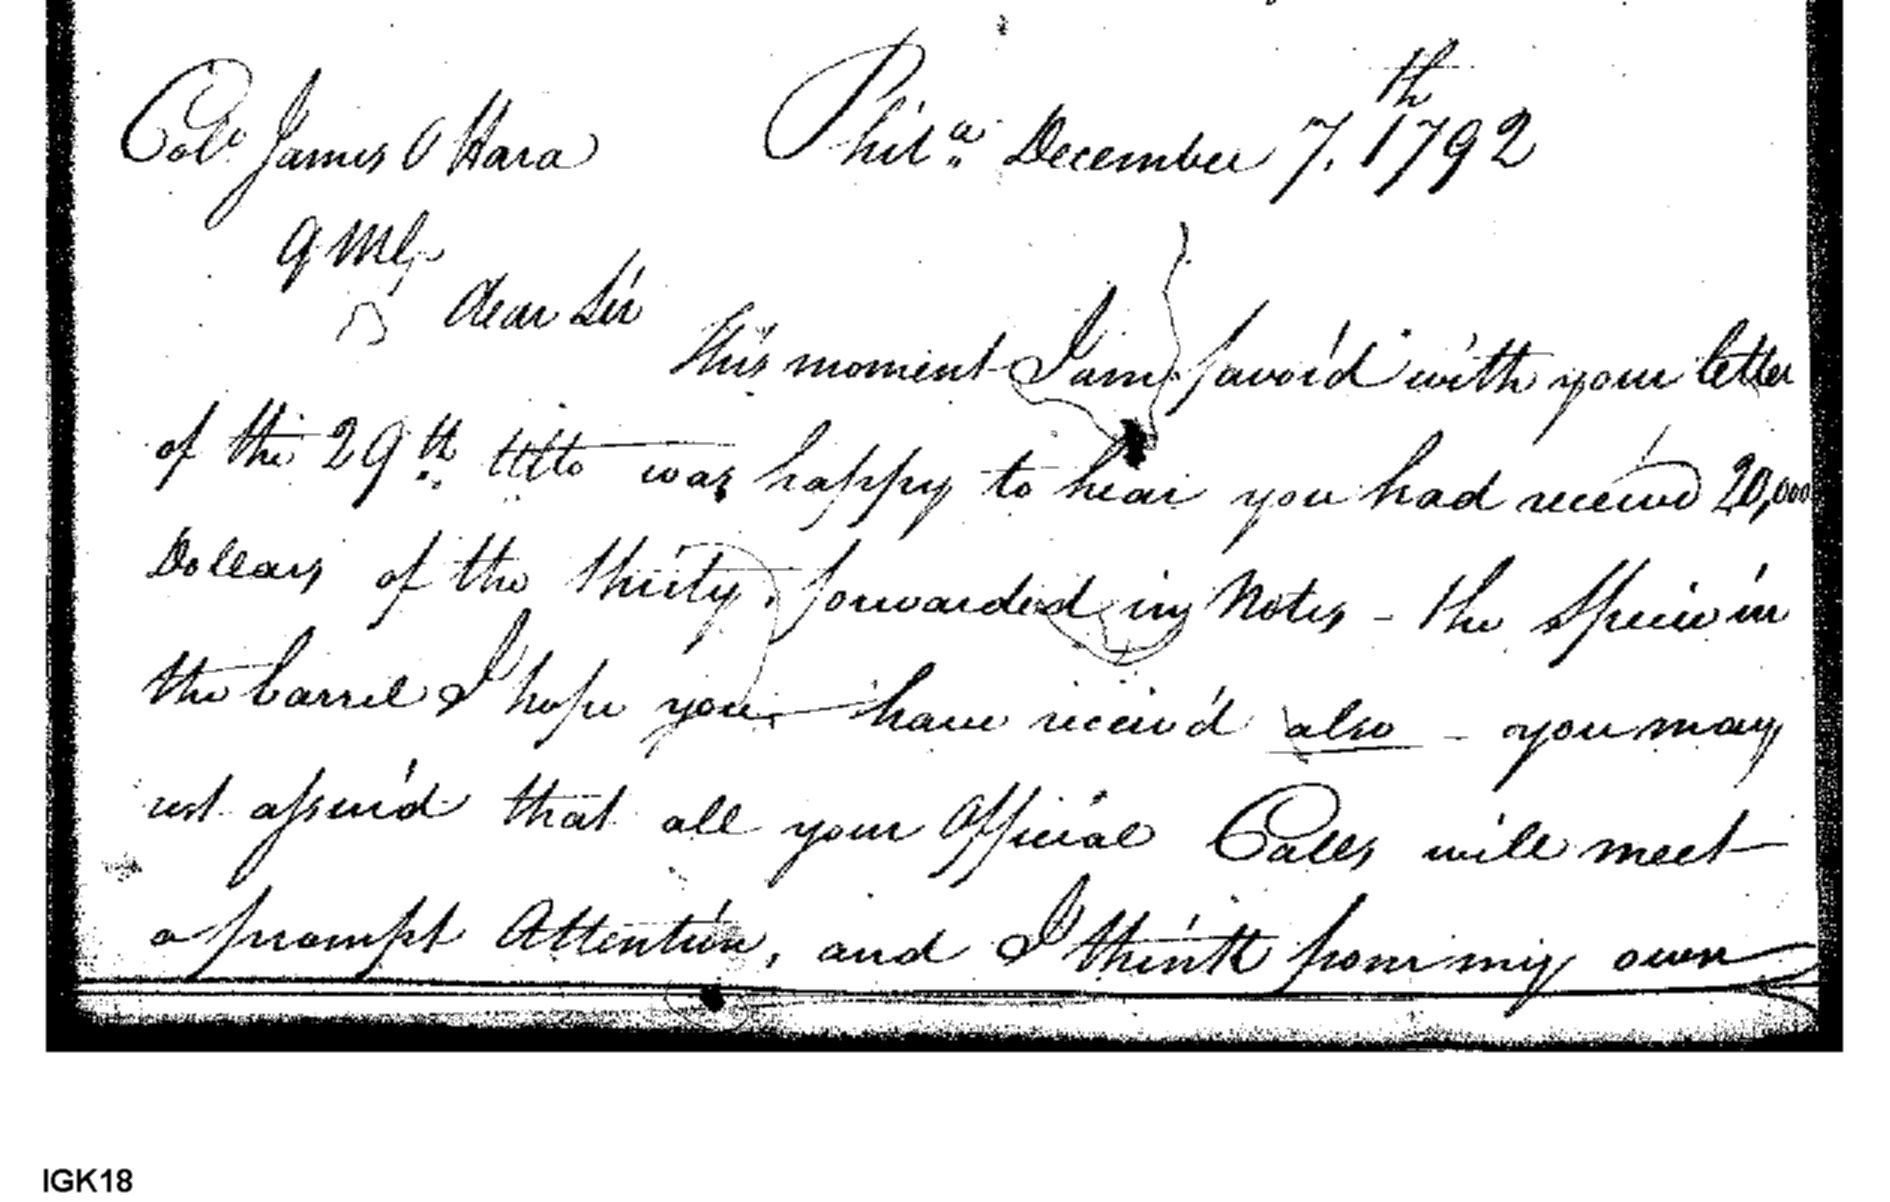 Colo. James O Hara Phila. December 7.th 1792
Q M G
Dear Sir
This moment I am favor'd with your letter
of the 29th Ulto was happy to hear you had received 20,000
Dollars of the thirty, forwarded in Notes - the Specie in
the barrel I hope you have receiv'd also - you may
rest assur'd that all your Official Calls will meet
a prompt Attention, and I think from my own
IGK18